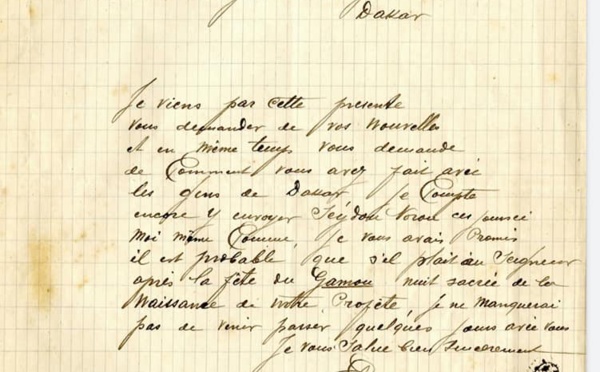 Dakar
Je viens par cette presente
vous demander de vos Nouvelles
et en même temps vous demande
de Comment vous avez fait avec
les gens de Dakar Je Compte
encore y envoyer Seydou
Moi même Comme, Je vous avais Promis
il est probable que s'el plait au Seigneur
après la fête du Gamou nuit sacrée de la
Naissance de Profète, je ne manquerai
pas de venir passer quelques jours avec vous
Je vous Salue bien Sincerement